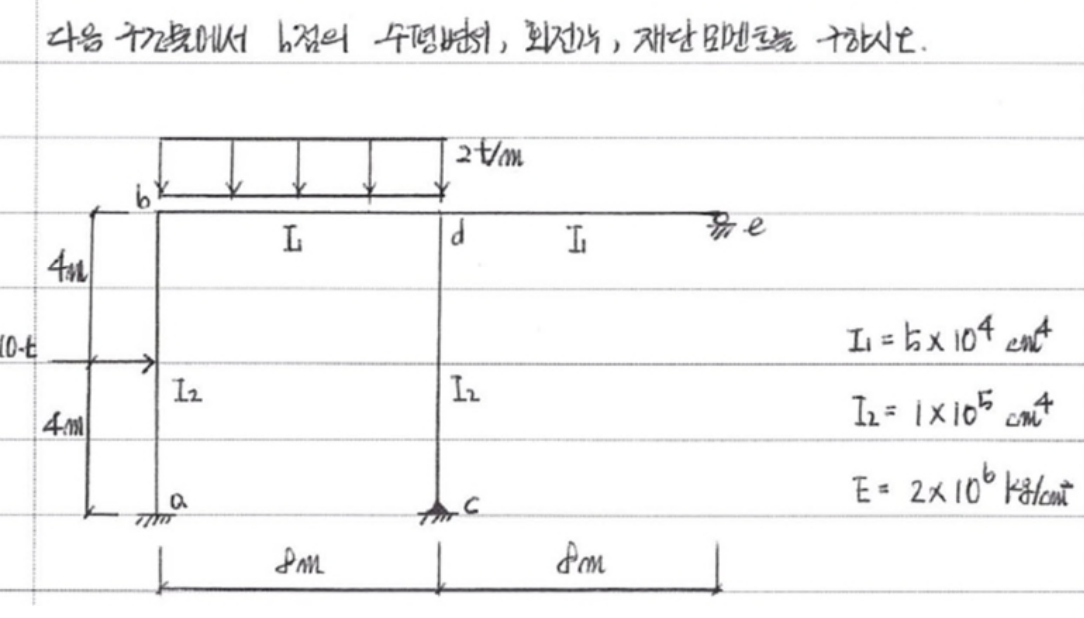 다음 구건물에서 b점의 수평변위, 회전각, 재단모멘트를 구하시오.
2t/m
b
I₁
d
I₁
e
4m
10t
I₂
I₂
4m
a
c
8m
8m
I₁ = 5×10⁴ cm⁴
I₂ = 1×10⁵ cm⁴
E = 2×10⁶ kg/cm²